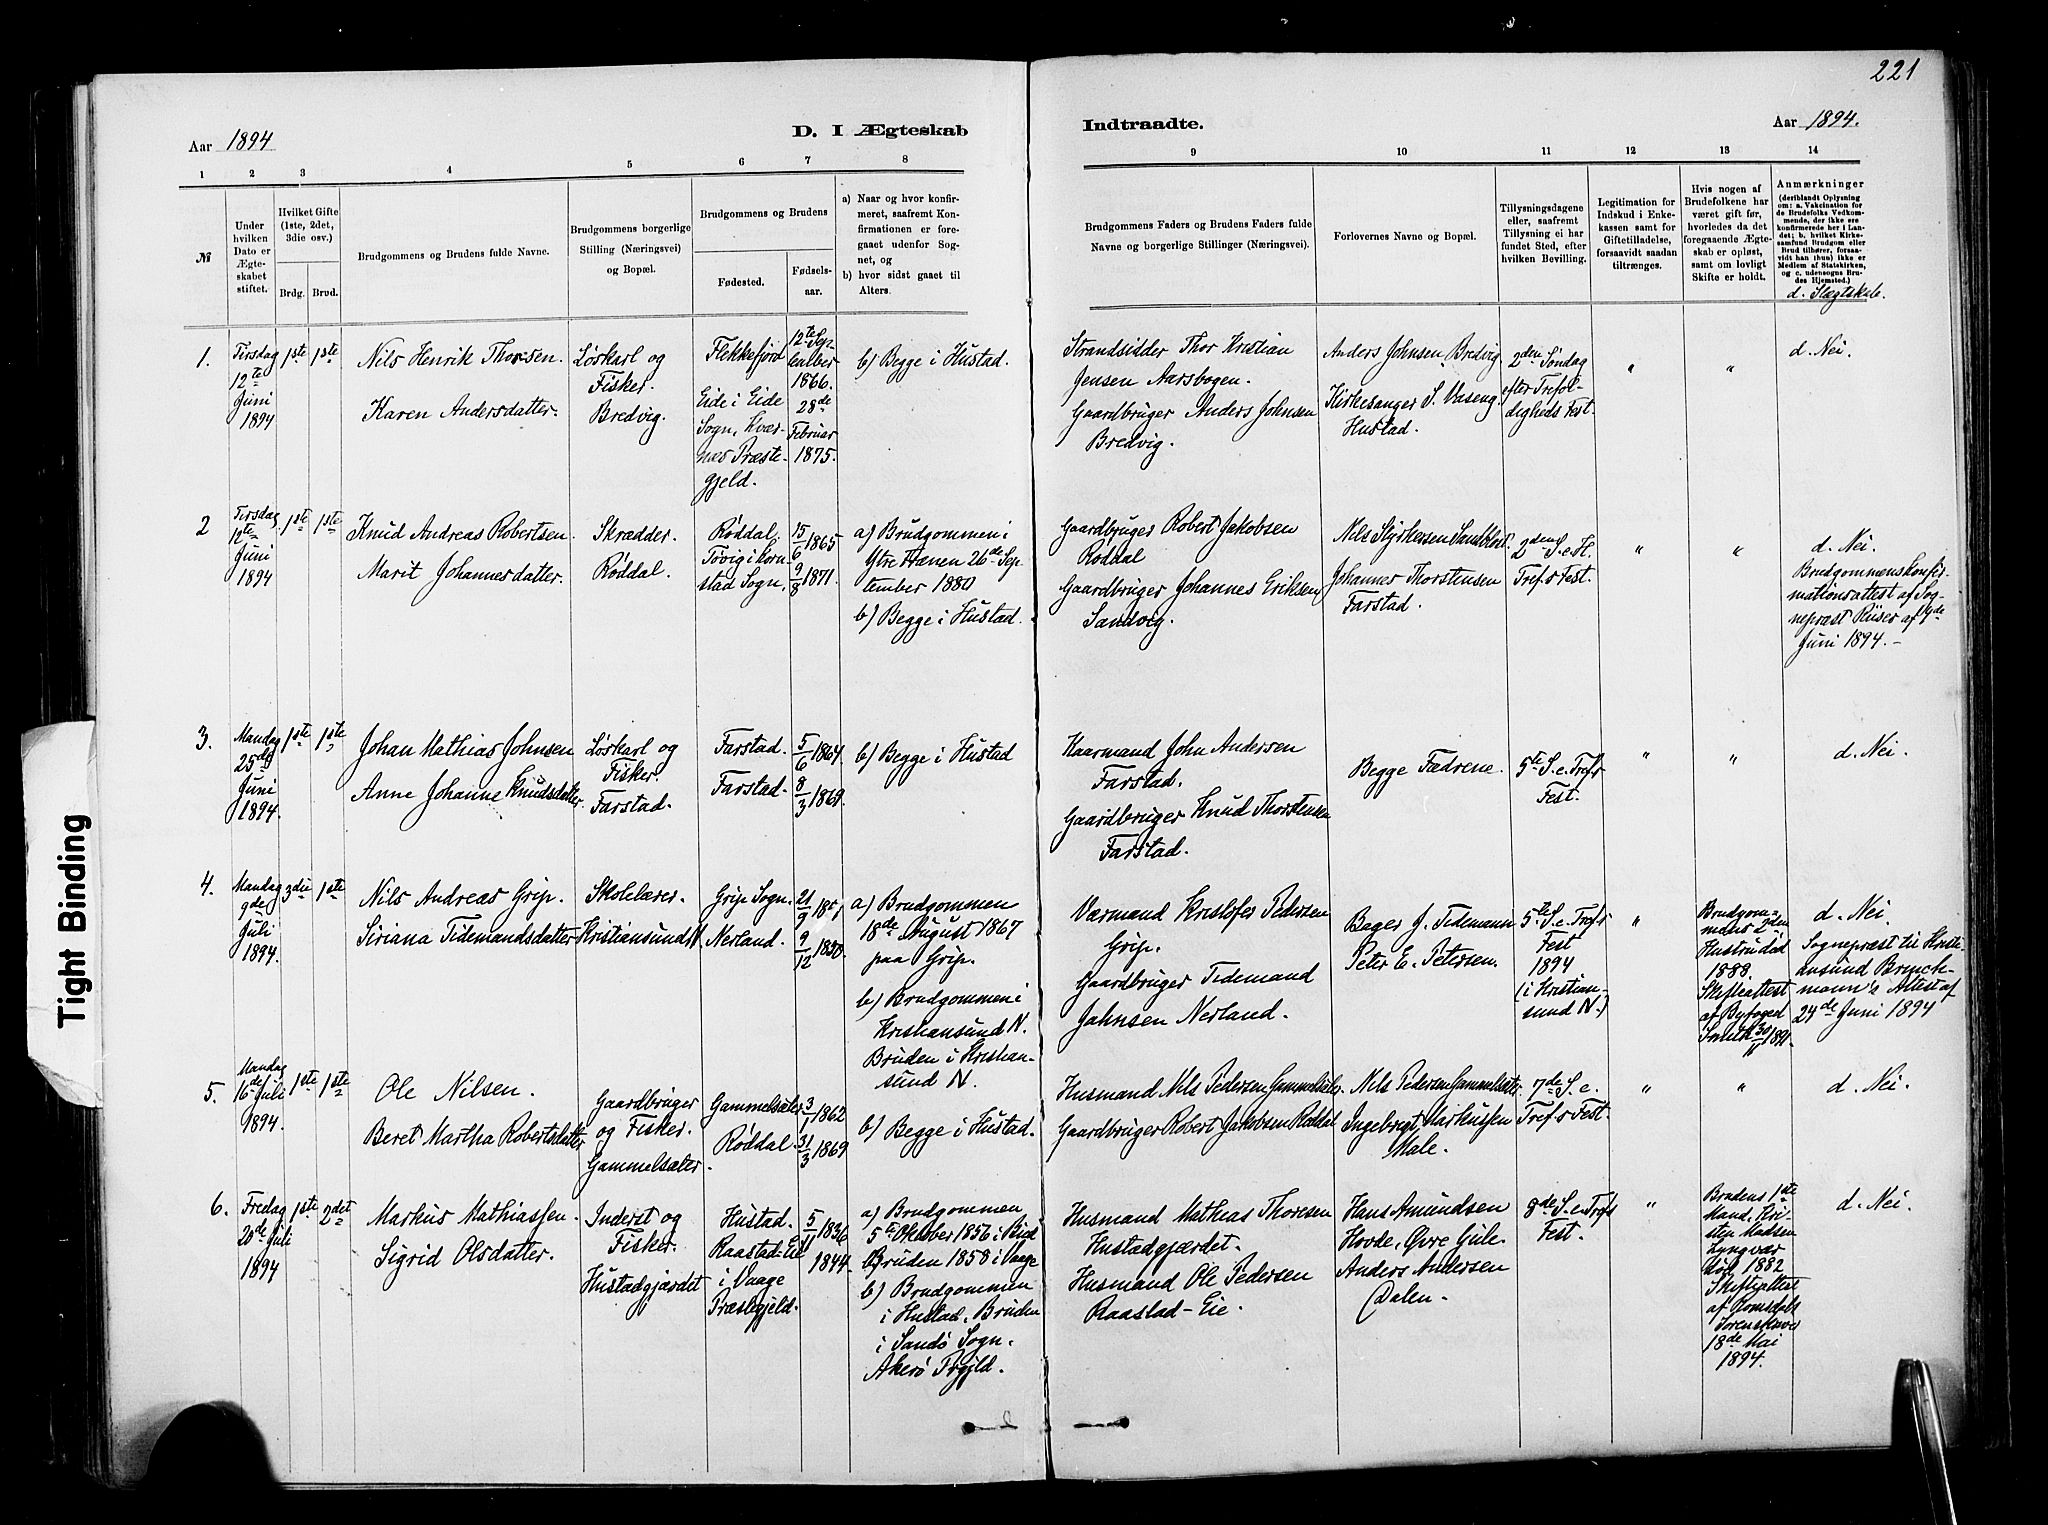 221
Aar 1894
D. I Ægteskab
Indtraadte.
Aar 1894.
1 2 3 4 5 6 7 8
9 10 11 12 13 14
№
Under
hvilken
Dato er
Ægte-
skabet
stiftet.
Hvilket Gifte
(1ste, 2det,
3die osv.)
Brdg. Brud.
Brudgommens og Brudens fulde Navne.
Brudgommens borgerlige
Stilling (Næringsvei)
og Bopæl.
Brudgommens og Brudens
Fødested.
Fødsels-
aar.
a) Naar og hvor konfir-
meret, saafremt Kon-
firmationen er fore-
gaaet udenfor Sog-
net, og
b) hvor sidst gaaet til
Alters.
Brudgommens Faders og Brudens Faders fulde
Navne og borgerlige Stillinger (Næringsvei).
Forlovernes Navne og Bopæl.
Tillysningsdagene
eller, saafremt
Tillysning ei har
fundet Sted, efter
hvilken Bevilling.
Legitimation for
Indskud i Enke-
kassen samt for
Giftetilladelse,
forsaavidt saadan
tiltrænges.
Hvis nogen af
Brudefolkene har
været gift før,
hvorledes da det
foregaaende Ægte-
skab er opløst,
samt om lovligt
Skifte er holdt.
Anmærkninger
(deriblandt Oplysning
om: a. Vakcination for
de Brudefolks Vedkom-
mende, der ikke ere
konfirmerede her i Lan-
det; b. hvilket Kirke-
samfund Brudgom eller
Brud tilhører, forsaa-
vidt han (hun) ikke er
Medlem af Statskirken,
og c. udensogns Bru-
des Hjemsted.)
d. Slægtskab.
1.
Tirsdag
12te
Juni
1894
1ste 1ste
Nils Henrik Thorsen.
Karen Andersdatter.
Løskarl og
Fisker.
Bredvig.
Flekkefjord
Eide i Eide
Sogn, Kvær-
næs Præste-
gjeld.
12te Sep-
tember
1866.
28de
Februar
1875.
b) Begge i Hustad.
Strandsidder Thor Kristian
Jensen Aarsbogen.
Gaardbruger Anders Johnsen
Bredvig.
Anders Johnsen Bredvig
Kirkesanger S. Vaseng
Hustad.
2den Søndag
efter Trefol-
digheds Fest.
" "
d. Nei.
2
Tirsdag
12te
Juni
1894
1ste 1ste
Knud Andreas Robertsen
Marit Johannesdatter.
Skrædder.
Røddal.
Røddal.
Tøvig i Korn-
stad Sogn.
15/6 1865
9/8 1871.
a) Brudgommen i
Ytre Hanen 26de Sep-
tember 1880
b) Begge i Hustad.
Gaardbruger Robert Jakobsen
Røddal
Gaardbruger Johannes Eriksen
Sandvig.
Nels Styrkersen Sandblost.
Johannes Thorstensen
Farstad.
2den S. e. H.
Tref.s Fest.
" "
d. Nei.
Brudgommens konfir-
mationsattest af Sog-
nepræst Riiser af 9de
Juni 1894.-
3.
Mandag
25de
Juni
1894.
1ste 1ste
Johan Mathias Johnsen
Anne Johanne Knudsdatter.
Løskarl og
Fisker.
Farstad.
Farstad.
Farstad.
5/6 1864.
8/3 1869.
b) Begge i Hustad
Kaarmand John Andersen
Farstad.
Gaardbruger Knud Thorstensen
Farstad.
Begge Fædrene.
5te S. e. Tref.s
Fest.
" "
d. Nei.
4.
Mandag
9de
Juli
1894.
3die 1ste
Nils Andreas Grip.
Siriana Tidemandsdatter
Skolelærer.
Kristiansund N.
Grip Sogn.
Nerland.
21/9
9/12 1850.
a) Brudgommen
18de August 1867
paa Grip.
b) Brudgommen i
Kristiansund N.
Bruden i Kristian-
sund N.
Værmand Kristofer Pedersen
Grip.
Gaardbruger Tidemand
Jahnsen Nerland.
Bager J. Tidemann
Peter E. Petersen.
5te S. e. Tref.s
Fest
1894
(i Kristian-
sund N.)
"
Brudgom-
mens 2den
Hustru død
1888.
Skifteattest
af Byfoged
d. Nei.
Sognepræst til Kristi-
ansund Brinch-
mann's Attest af
24de Juni 1894
5.
Mandag
16de Juli
1894.
1ste 1ste
Ole Nilsen.
Beret Martha Robertsdatter
Gaardbruger
og Fisker.
Gammelsæter
Gammelsæter
Røddal.
3/1 1862
31/3 1869
b) Begge i Hustad.
Husmand Nels Pedersen Gammelsæter.
Gaardbruger Robert Jakobsen Røddal
Nels Pedersen Gammelsæter
Ingebrigt Markussen
Male.
7de S. e.
Tref.s Fest.
" "
d. Nei.
6.
Fredag
20de Juli
1894
1ste 2det
Markus Mathiassen.
Sigrid Olsdatter.
Inderst og
Fisker.
Hustadgjærdet
Hustad.
Raastad-Eie
i Vaage
Præstegjeld.
5/11 1836
1844.
a) Brudgommen
5te Oktober 1856 i Bud
Bruden 1858 i Vaage
b) Brudgommen
i Hustad. Bruden
i Sandø Sogn.
Akerø Prgjld.
Husmand Mathias Thoresen
Hustadgjærdet.
Husmand Ole Pedersen
Raastad-Eie.
Hans Amundsen
Hovde, Øvre Gule.
Anders Andersen
Dalen.
8de S. e. Tref.s
Fest.
"
Brudens 1ste
Mand, Kri-
sten Madsen
Lyngvær
død 1882
Skifteattest
af Romsdals
Sorenskriver
18de Mai
1894.
d. Nei
Tight Binding